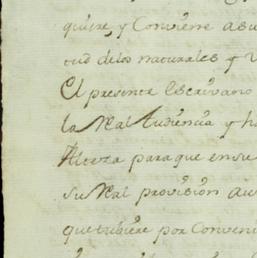 quiere, y Conviene a su
tud de los naturales y V
El presente Escrivano
la Real Audiencia y h
Alteza para que en su
su Real provision au
que tubiere por Conveni